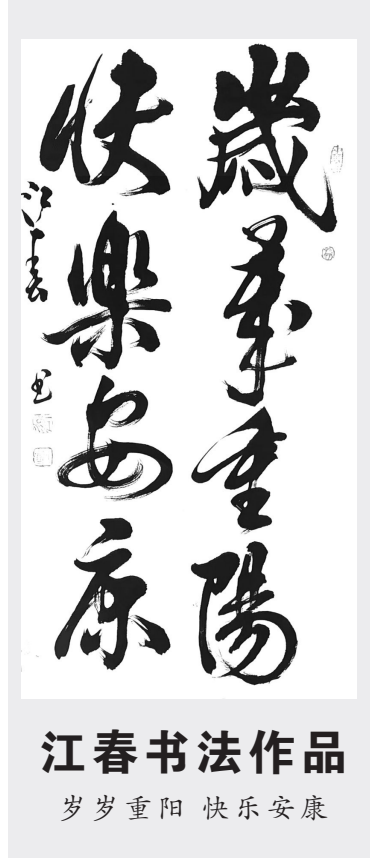 歲歲重陽
快樂安康
江春书
江春书法作品
岁岁重阳 快乐安康